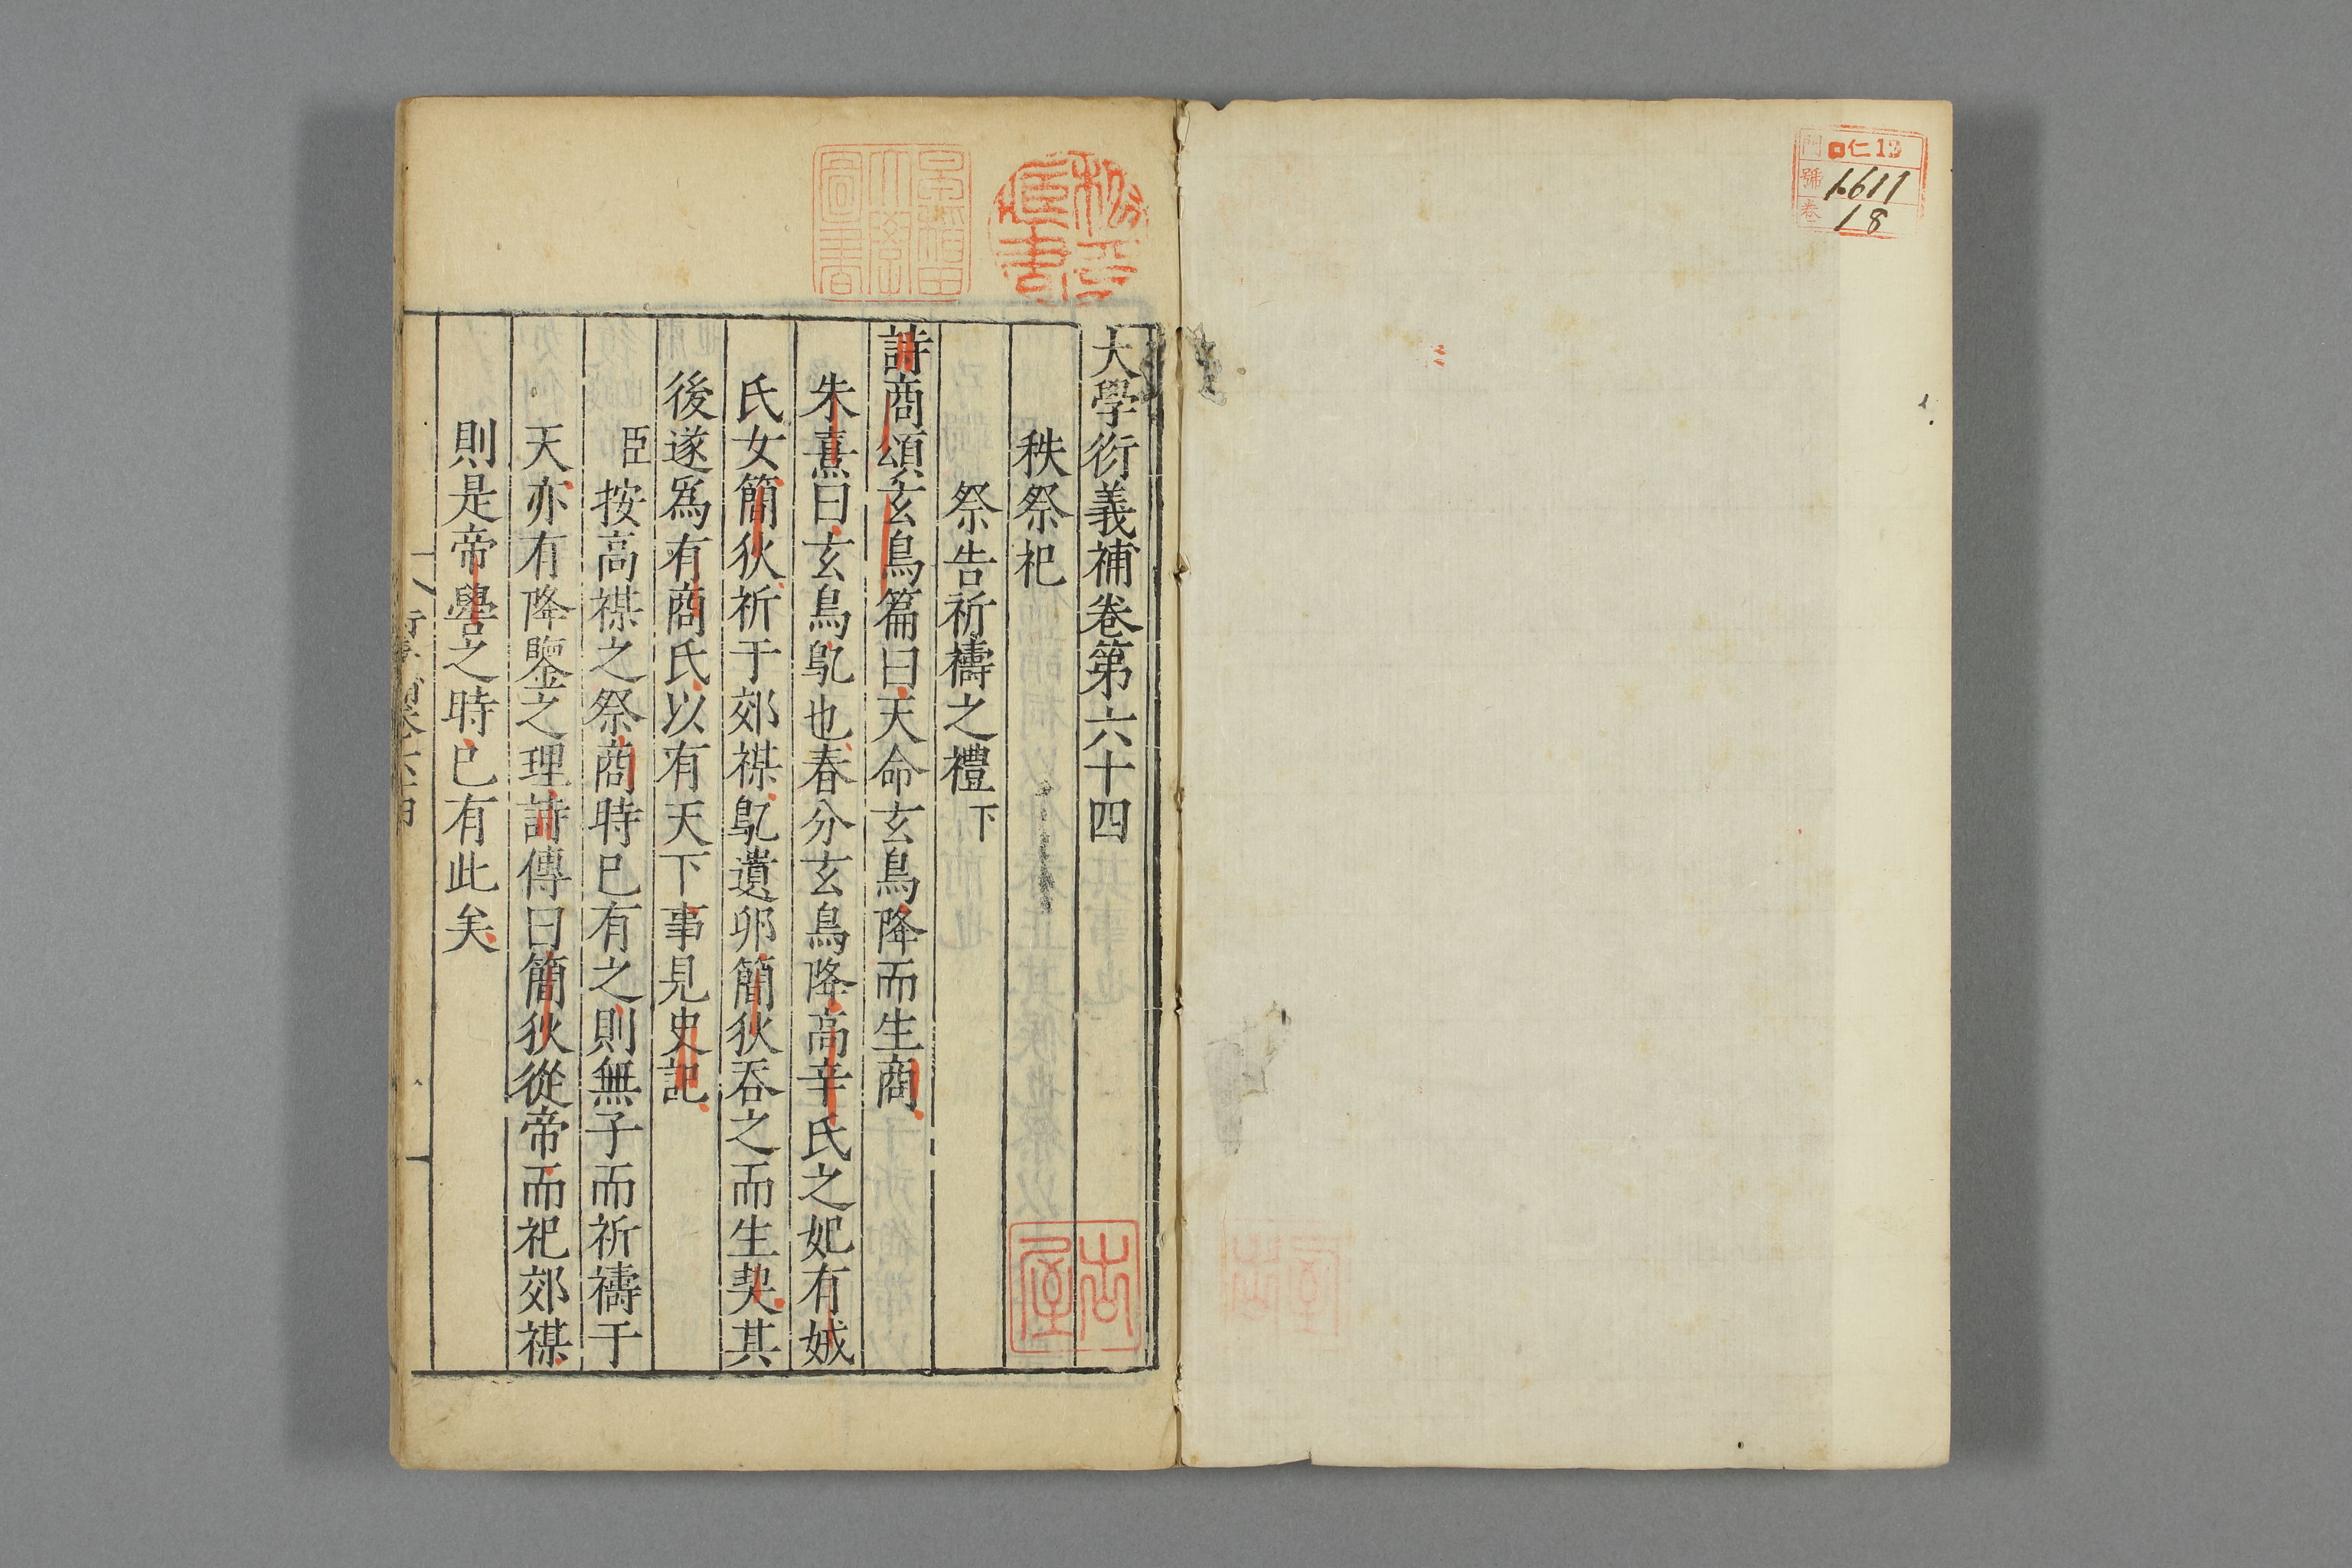 門 ロ仁12
號 1611
卷 18
大學衍義補卷第六十四
秩祭祀
祭告祈禱之禮下
詩商頌玄鳥篇曰天命玄鳥降而生商
朱熹曰玄鳥鳦也春分玄鳥降高辛氏之妃有娀
氏女簡狄祈于郊禖鳦遺卵簡狄吞之而生契其
後遂爲有商氏以有天下事見史記
臣按高禖之祭商時已有之則無子而祈禱于
天亦有降鑒之理詩傳曰簡狄從帝而祀郊禖
則是帝嚳之時已有此矣